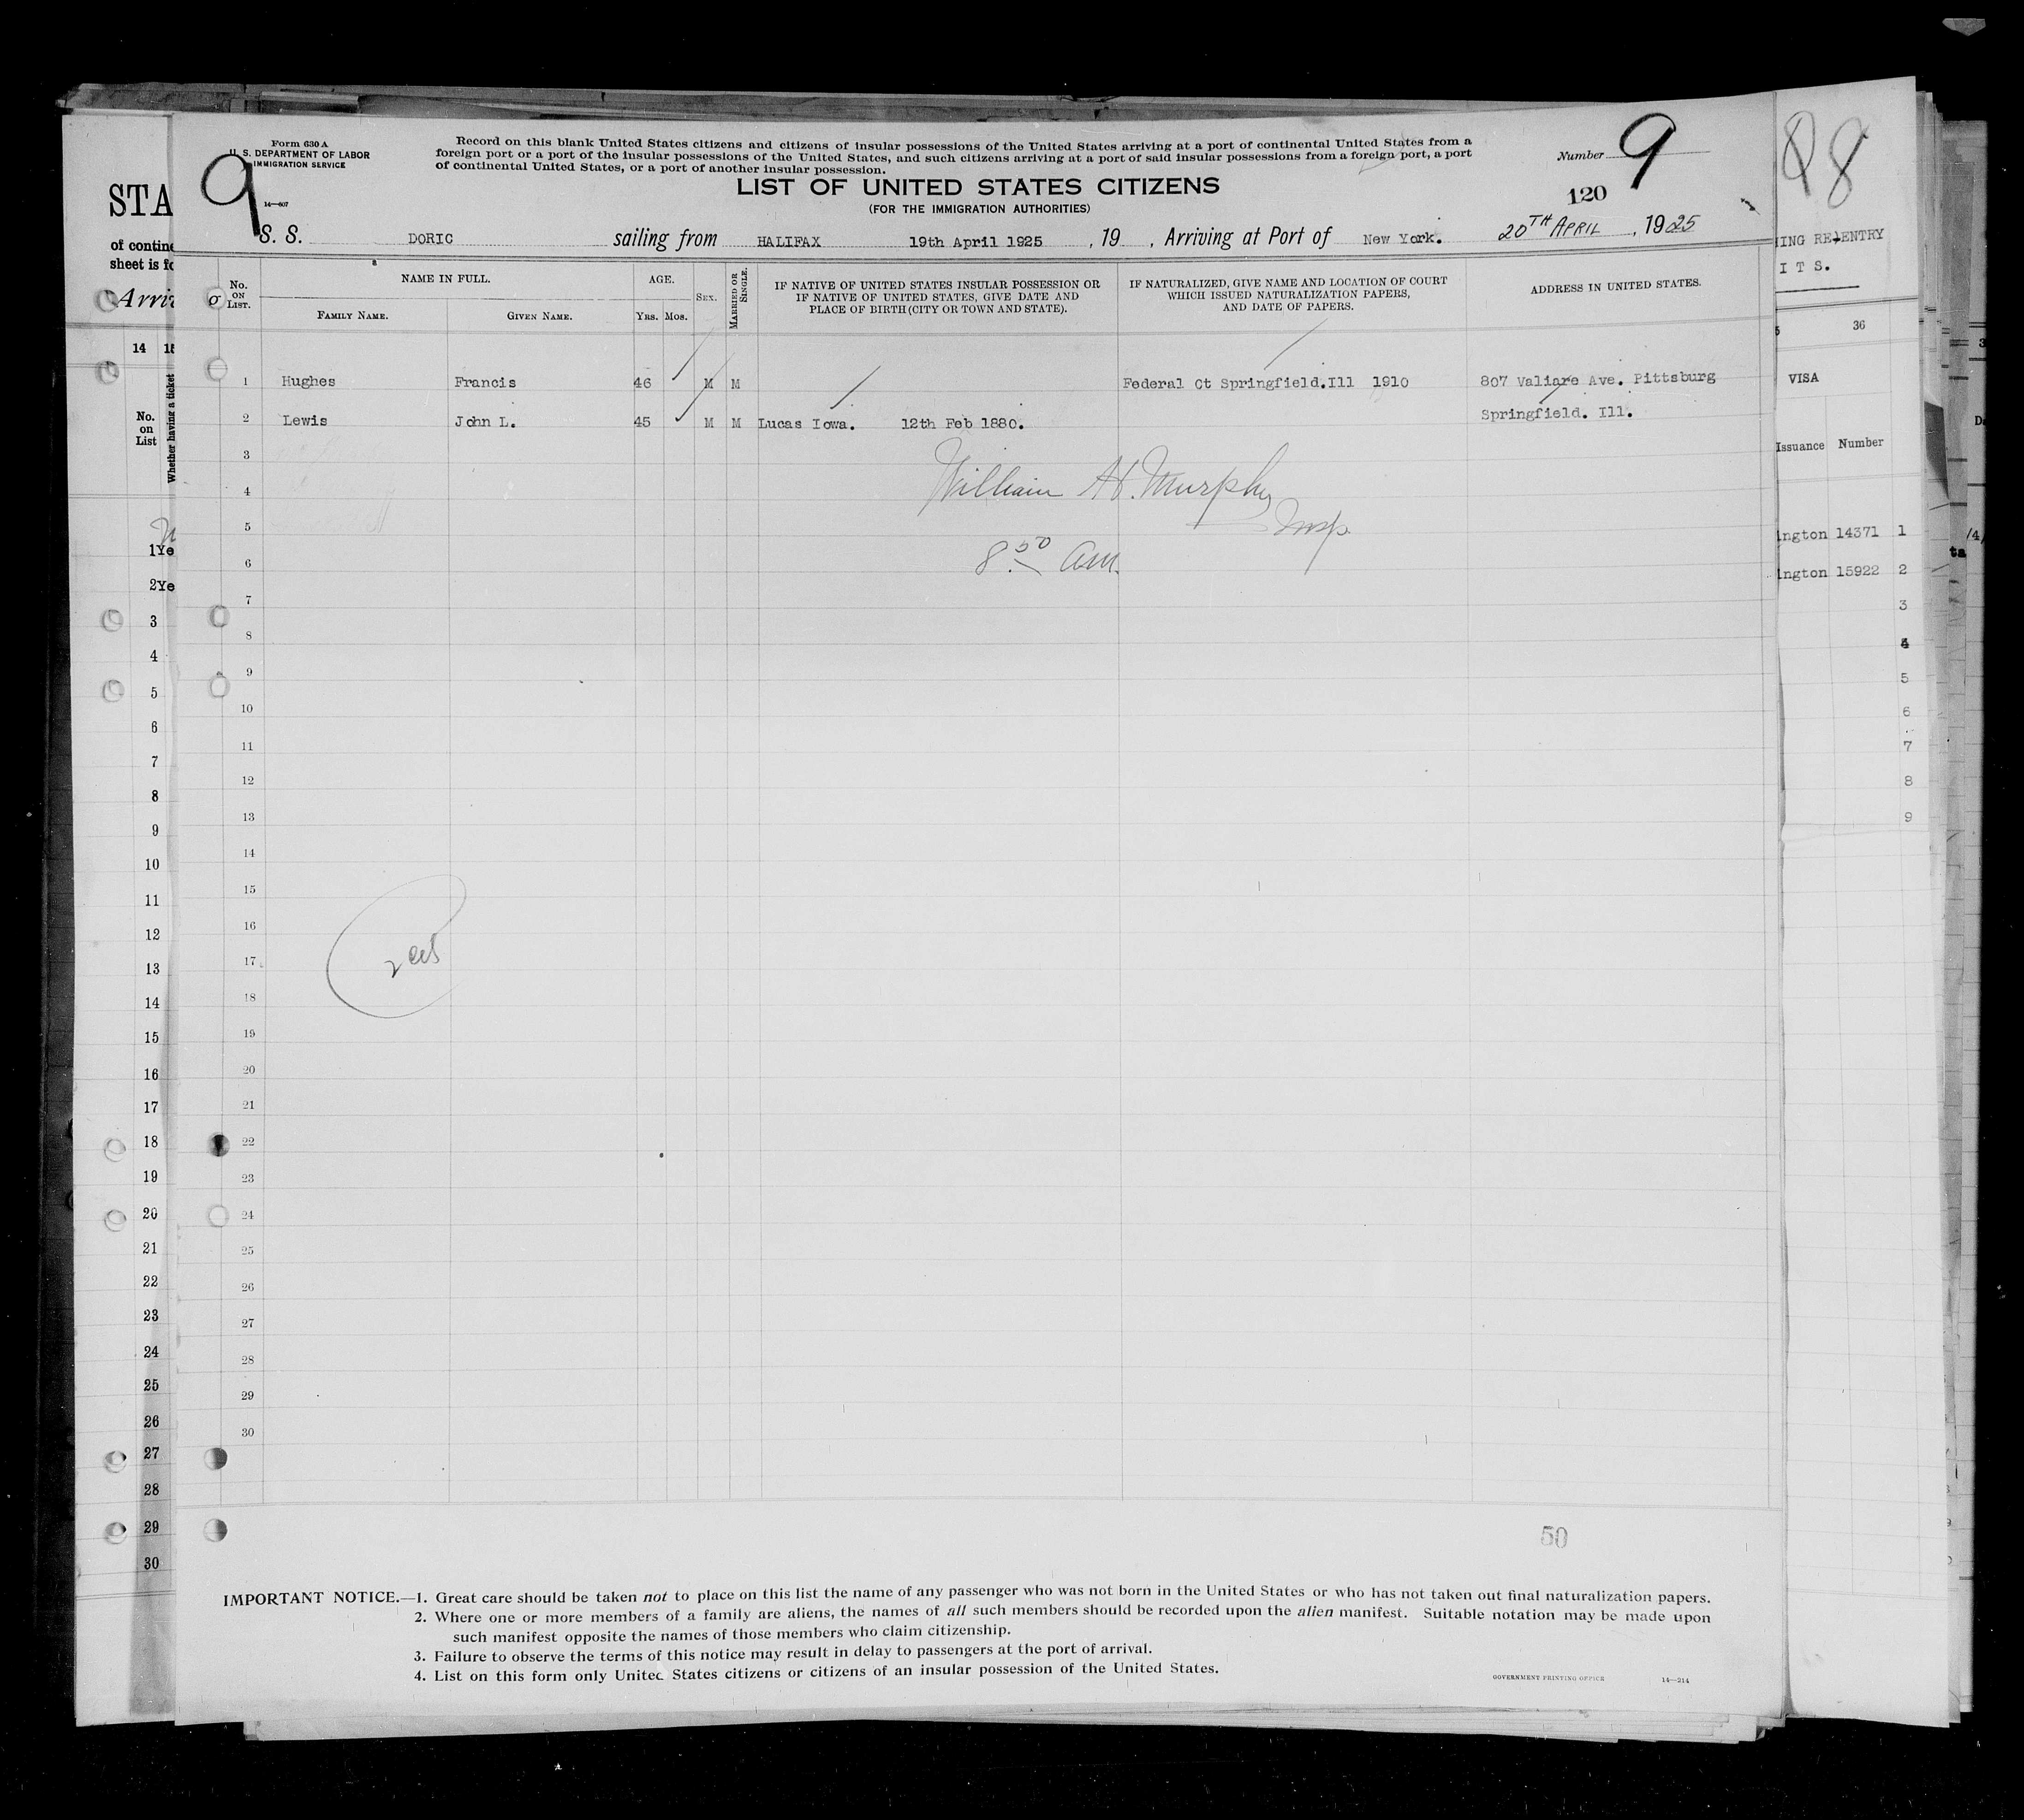 Form 630 A
U. S. DEPARTMENT OF LABOR
IMMIGRATION SERVICE
14—607
9
Record on this blank United States citizens and citizens of insular possessions of the United States arriving at a port of continental United States from a
foreign port or a port of the insular possessions of the United States, and such citizens arriving at a port of said insular possessions from a foreign port, a port
of continental United States, or a port of another insular possession.
Number 9
120
LIST OF UNITED STATES CITIZENS
(FOR THE IMMIGRATION AUTHORITIES)
S. S. DORIC sailing from HALIFAX 19th April 1925 , 19 , Arriving at Port of New York. 20TH APRIL , 1925
No. ON LIST. NAME IN FULL. AGE. SEX. MARRIED OR SINGLE. IF NATIVE OF UNITED STATES INSULAR POSSESSION OR IF NATIVE OF UNITED STATES, GIVE DATE AND PLACE OF BIRTH (CITY OR TOWN AND STATE). IF NATURALIZED, GIVE NAME AND LOCATION OF COURT WHICH ISSUED NATURALIZATION PAPERS, AND DATE OF PAPERS. ADDRESS IN UNITED STATES.
FAMILY NAME. GIVEN NAME. YRS. MOS.
1 Hughes Francis 46 M M Federal Ct Springfield.Ill 1910 807 Valiare Ave. Pittsburg
2 Lewis John L. 45 M M Lucas Iowa. 12th Feb 1880. Springfield. Ill.
3
4 William H. Murphy
5 Insp.
6 8.50 am.
7
8
9
10
11
12
13
14
15
16
17
18
19
20
21
22
23
24
25
26
27
28
29
30
50
IMPORTANT NOTICE.—1. Great care should be taken not to place on this list the name of any passenger who was not born in the United States or who has not taken out final naturalization papers.
2. Where one or more members of a family are aliens, the names of all such members should be recorded upon the alien manifest. Suitable notation may be made upon
such manifest opposite the names of those members who claim citizenship.
3. Failure to observe the terms of this notice may result in delay to passengers at the port of arrival.
4. List on this form only United States citizens or citizens of an insular possession of the United States.
GOVERNMENT PRINTING OFFICE 14—214
STA
of contine
sheet is fo
Arriv
14 15
No. on List
Whether having a ticket
1 Ye
2 Ye
3
4
5
6
7
8
9
10
11
12
13
14
15
16
17
18
19
20
21
22
23
24
25
26
27
28
29
30
88
ING RE-ENTRY
I T S.
36
VISA
Issuance Number
ington 14371 1
ington 15922 2
3
4
5
6
7
8
9